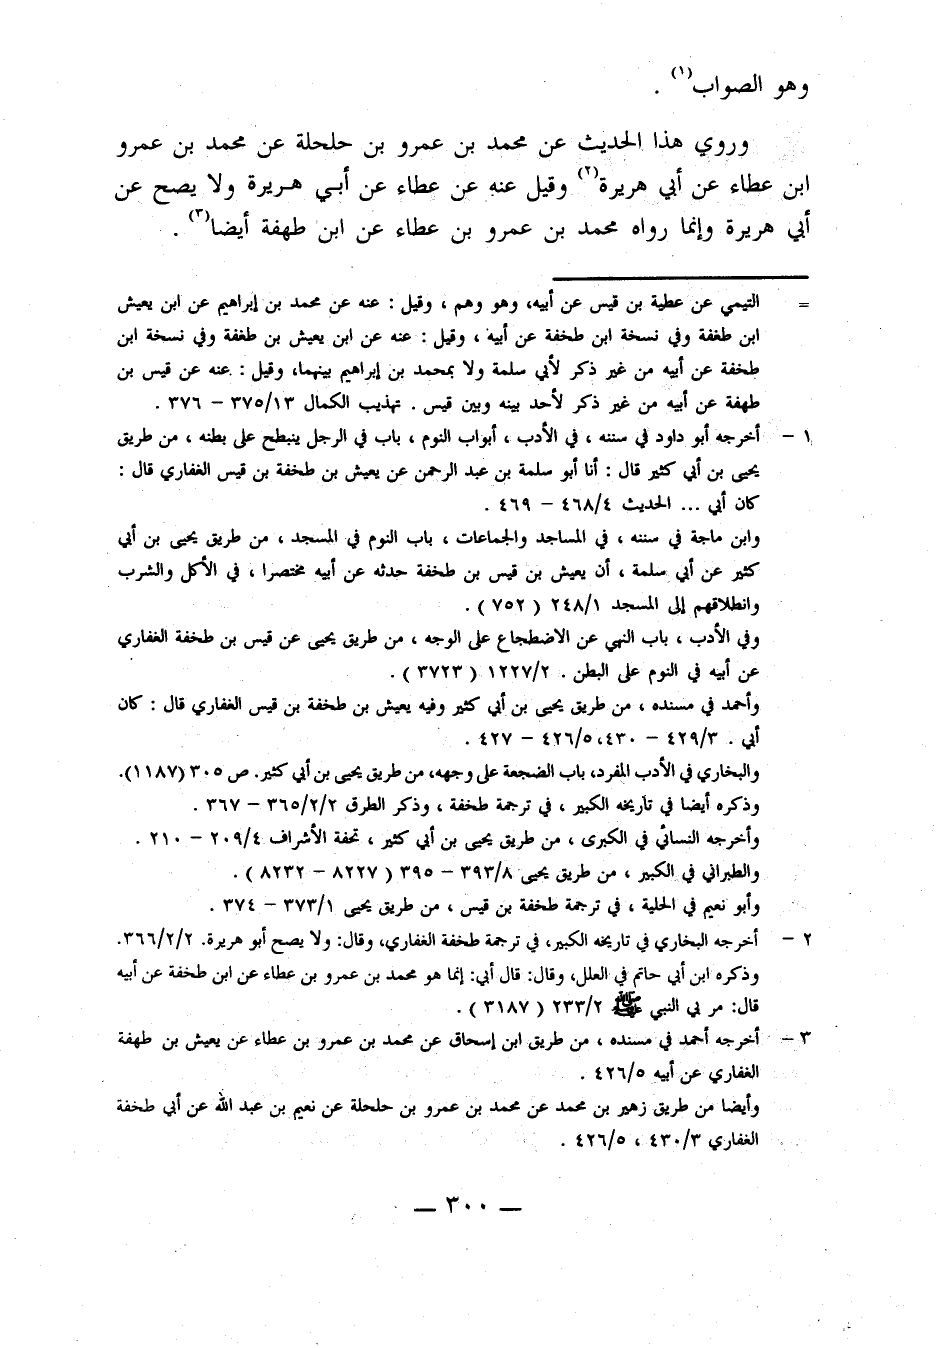 وهو الصواب(١) .
وروي هذا الحديث عن محمد بن عمرو بن حلحلة عن محمد بن عمرو
ابن عطاء عن أبي هريرة(٢) وقيل عنه عن عطاء عن أبي هريرة ولا يصح عن
أبي هريرة وإنما رواه محمد بن عمرو بن عطاء عن ابن طهفة أيضا(٣) .
= التيمي عن عطية بن قيس عن أبيه، وهو وهم ، وقيل : عنه عن محمد بن إبراهيم عن ابن يعيش
ابن طغفة وفي نسخة ابن طخفة عن أبيه ، وقيل : عنه عن ابن يعيش بن طغفة وفي نسخة ابن
طخفة عن أبيه من غير ذكر لأبي سلمة ولا بمحمد بن إبراهيم بينهما، وقيل : عنه عن قيس بن
طهفة عن أبيه من غير ذكر لأحد بينه وبين قيس . تهذيب الكمال ٣٧٥/١٣ – ٣٧٦ .
١ – أخرجه أبو داود في سننه ، في الأدب ، أبواب النوم ، باب في الرجل ينبطح على بطنه ، من طريق
يحيى بن أبي كثير قال : أنا أبو سلمة بن عبد الرحمن عن يعيش بن طخفة بن قيس الغفاري قال :
كان أبي ... الحديث ٤٦٨/٤ – ٤٦٩ .
وابن ماجة في سننه ، في المساجد والجماعات ، باب النوم في المسجد ، من طريق يحيى بن أبي
كثير عن أبي سلمة ، أن يعيش بن قيس بن طخفة حدثه عن أبيه مختصرا ، في الأكل والشرب
وانطلاقهم إلى المسجد ٢٤٨/١ ( ٧٥٢ ) .
وفي الأدب ، باب النهي عن الاضطجاع على الوجه ، من طريق يحيى عن قيس بن طخفة الغفاري
عن أبيه في النوم على البطن . ١٢٢٧/٢ ( ٣٧٢٣ ) .
وأحمد في مسنده ، من طريق يحيى بن أبي كثير وفيه يعيش بن طخفة بن قيس الغفاري قال : كان
أبي . ٤٢٩/٣ – ٤٣٠، ٤٢٦/٥ – ٤٢٧ .
والبخاري في الأدب المفرد، باب الضجعة على وجهه، من طريق يحيى بن أبي كثير. ص ٣٠٥ (١١٨٧).
وذكره أيضا في تاريخه الكبير ، في ترجمة طخفة ، وذكر الطرق ٣٦٥/٢/٢ – ٣٦٧ .
وأخرجه النسائي في الكبرى ، من طريق يحيى بن أبي كثير ، تحفة الأشراف ٢٠٩/٤ – ٢١٠ .
والطبراني في الكبير ، من طريق يحيى ٣٩٣/٨ – ٣٩٥ ( ٨٢٢٧ – ٨٢٣٢ ) .
وأبو نعيم في الحلية ، في ترجمة طخفة بن قيس ، من طريق يحيى ٣٧٣/١ – ٣٧٤ .
٢ – أخرجه البخاري في تاريخه الكبير، في ترجمة طخفة الغفاري، وقال: ولا يصح أبو هريرة. ٣٦٦/٢/٢.
وذكره ابن أبي حاتم في العلل، وقال: قال أبي: إنما هو محمد بن عمرو بن عطاء عن ابن طخفة عن أبيه
قال: مر بي النبي ﷺ ٢٣٣/٢ ( ٣١٨٧ ) .
٣ – أخرجه أحمد في مسنده ، من طريق ابن إسحاق عن محمد بن عمرو بن عطاء عن يعيش بن طهفة
الغفاري عن أبيه ٤٢٦/٥ .
وأيضا من طريق زهير بن محمد عن محمد بن عمرو بن حلحلة عن نعيم بن عبد الله عن أبي طخفة
الغفاري ٤٣٠/٣ ، ٤٢٦/٥ .
— ٣٠٠ —